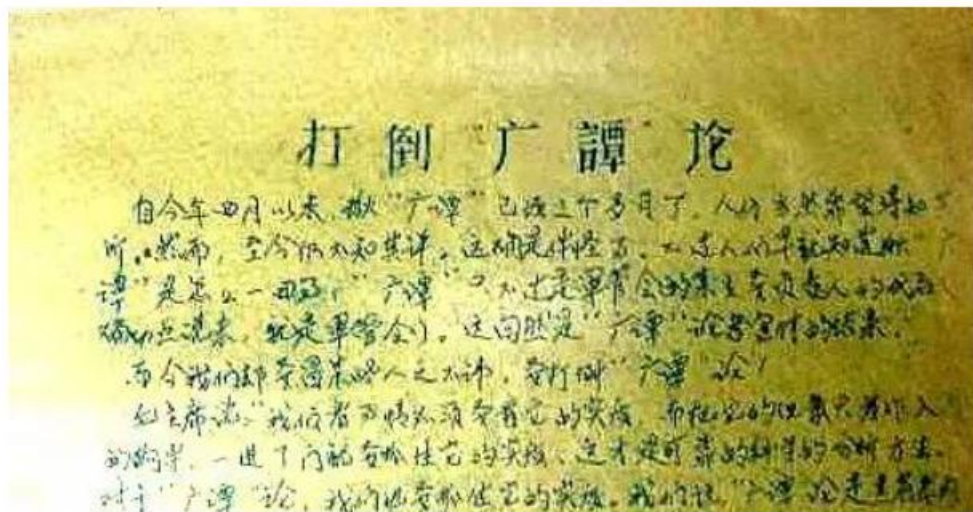 打倒"广譚"论
自今年四月以来,揪"广谭"已经三个多月了,人们当然希望得知下
所。然而,至今仍不知其详。这确是件怪事。不过人们早就知道所"广
谭"是怎么一回事,"广谭"只不过是军管会的某些负责人的
点说来,就是军管会)。这回然是"广谭"论者宣传的结果。
而今我们却要冒某些人之大讳,要打倒"广谭"论!
毛主席说:"我们看事情必须要看它的实质,而把它的现象只看作入
的向导,一进了门就要抓住它的实质,这才是可靠的科学的分析方法。
对于"广谭"论,我们也要抓住它的实质。我们说"广谭"论是